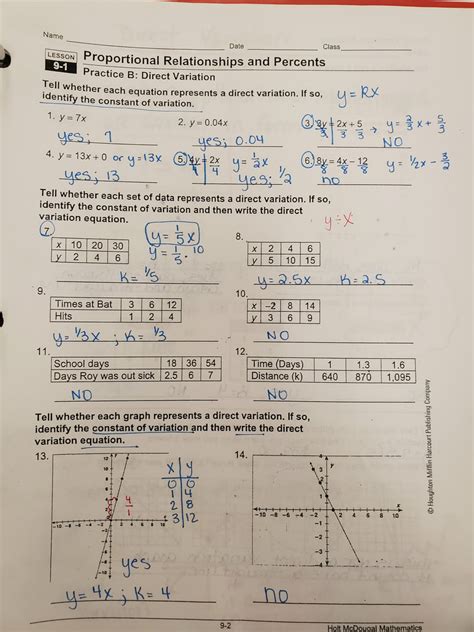 Name
Date Class
LESSON 9-1 Proportional Relationships and Percents
Practice B: Direct Variation
Tell whether each equation represents a direct variation. If so,
identify the constant of variation.
y = kx
1. y = 7x 2. y = 0.04x 3. 3y = 2x + 5 → y = 2/3 x + 5/3
3 3 3
yes; 7 yes; 0.04 NO
4. y = 13x + 0 or y=13x 5. 4y = 2x y = 1/2 x 6. 8y = 4x – 12 y = 1/2x - 3/2
4 4 8 8 8
yes; 13 yes; 1/2 no
Tell whether each set of data represents a direct variation. If so,
identify the constant of variation and then write the direct
variation equation.
y÷x
7. y = 1/5 x 8.
x 10 20 30 y = 1/5 · 10 x 2 4 6
y 2 4 6 y 5 10 15
K = 1/5 y = 2.5x K = 2.5
9. 10.
Times at Bat 3 6 12 x –2 8 14
Hits 1 2 4 y 3 6 9
y = 1/3 x ; K = 1/3 NO
11. 12.
School days 18 36 54 Time (Days) 1 1.3 1.6
Days Roy was out sick 2.5 6 7 Distance (k) 640 870 1,095
NO NO
Tell whether each graph represents a direct variation. If so,
identify the constant of variation and then write the direct
variation equation.
13. 14.
x y
0 0
1 4
2 8
3 12
4/1
yes
y = 4x ; K = 4 no
© Houghton Mifflin Harcourt Publishing Company
9-2 Holt McDougal Mathematics